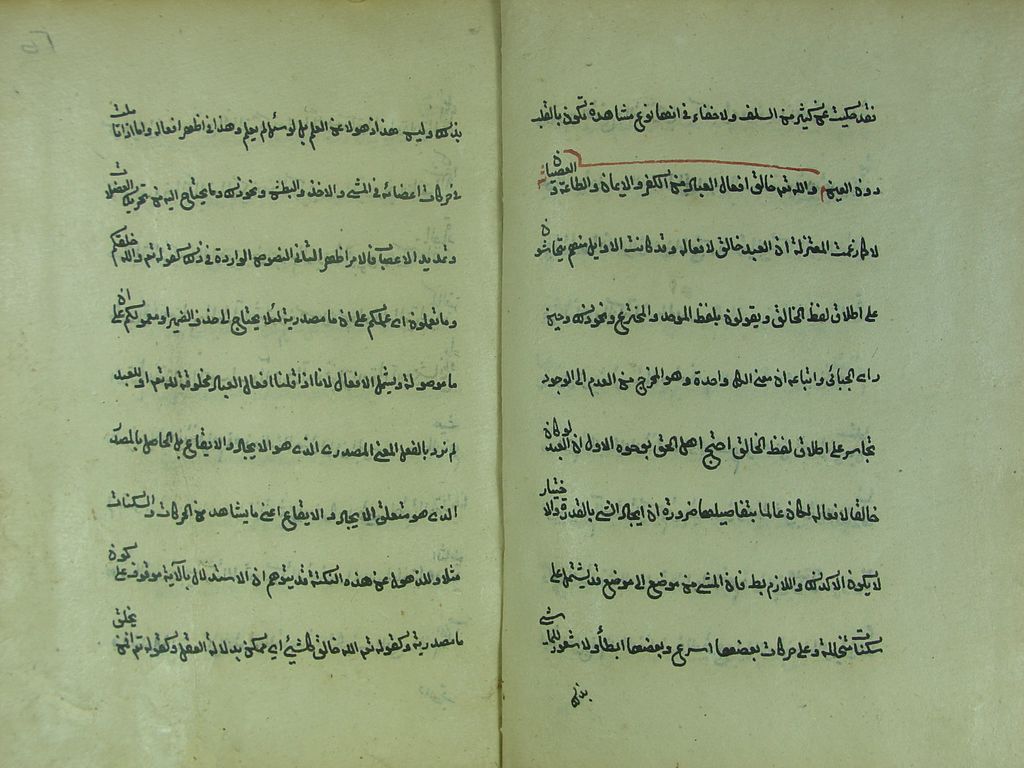 فقد حكيت عن كثير من السلف ولا خفاء في انها نوع مشاهدة تكون بالقلب
دون العين والله تع خالق افعال العباد من الكفر والايمان والطاعة والعصيان
لا كما زعمت المعتزلة ان العبد خالق لافعاله وقد كانت الاوايل منهم يتحاشون
على اطلاق لفظ الخالق ويقولون بلفظ الموجد والمخترع ونحو ذلك وحين
راى الجبائى واتباعه ان معنى الكل واحد وهو المخرج من العدم الى الوجود
تجاسر على اطلاق لفظ الخالق احتج اهل الحق بوجوه الاول ان العبد لو كان
خالقا لافعاله لكان عالما بتفاصيلها ضرورة ان ايجاد الشئ بالقدرة والاختيار
لا يكون الا كذلك واللازم بط فان المشي من موضع الى موضع قد يشتمل على
سكنات متخللة وعلى حركات بعضها اسرع وبعضها ابطأ ولا شعور للماشي
بذلك
بذلك وليس هذا ذهولا عن العلم بل لو سئل لم يعلم وهذا في اظهر افعاله واما اذا تأملت
في حركات اعضائه في المشي والاخذ والبطش ونحو ذلك وما يحتاج اليه من تحريك العضلات
وتمديد الاعصاب فالامر اظهر الثاني النصوص الواردة في ذلك كقوله تع والله خلقكم
وما تعملون اى عملكم على ان ما مصدرية لئلا يحتاج الى حذف الضمير او معمولكم على ان
ما موصولة ويشمل الافعال لانا اذا قلنا افعال العباد مخلوقة لله تع او للعبد
لم نرد بالفعل المعنى المصدرى الذى هو الايجاد والايقاع بل الحاصل بالمصدر
الذى هو متعلق الايجاد والايقاع اعنى ما يشاهد من الحركات والسكنات
مثلا وللذهول عن هذه النكتة قد يتوهم ان الاستدلال بالآية موقوف على كون
ما مصدرية وكقوله تع الله خالق كل شيئ اى ممكن بدلالة العقل وكقوله تع افمن يخلق